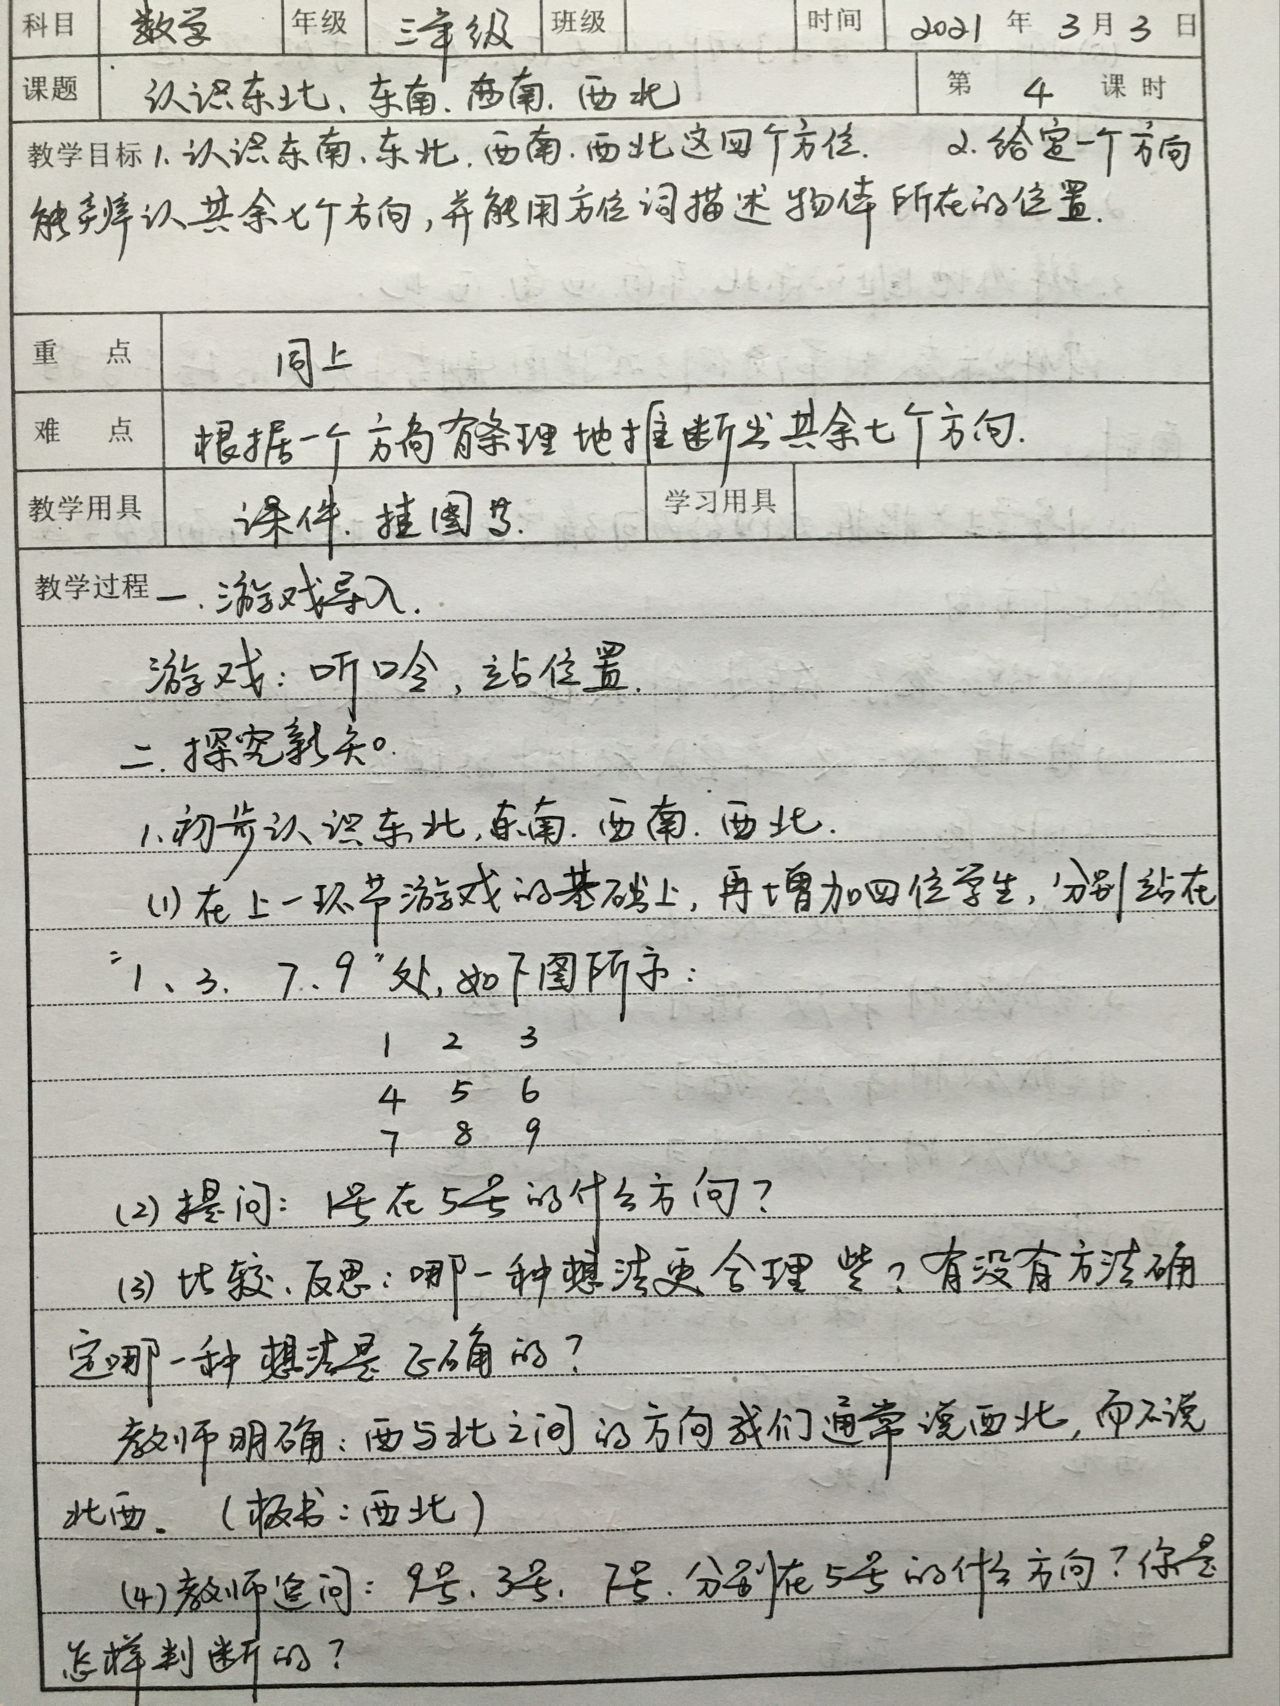 科目 数学 年级 三年级 班级 时间 2021 年 3 月 3 日
课题 认识东北、东南、西南、西北 第 4 课时
教学目标 1.认识东南、东北、西南、西北这四个方位. 2.给定一个方向
能辨认其余七个方向,并能用方位词描述物体所在的位置.
重 点 同上
难 点 根据一个方向有条理地推断出其余七个方向.
教学用具 课件、挂图等. 学习用具
教学过程 一.游戏导入.
游戏:听口令,站位置.
二.探究新知。
1.初步认识东北,东南.西南.西北.
(1)在上一环节游戏的基础上,再增加四位学生,分别站在
“1、3、7、9”处,如下图所示:
1 2 3
4 5 6
7 8 9
(2)提问:1号在5号的什么方向?
(3)比较、反思:哪一种想法更合理些?有没有方法确
定哪一种想法是正确的?
教师明确:西与北之间的方向我们通常说西北,而不说
北西。(板书:西北)
(4)教师追问:9号、3号、7号.分别在5号的什么方向?你是
怎样判断的?